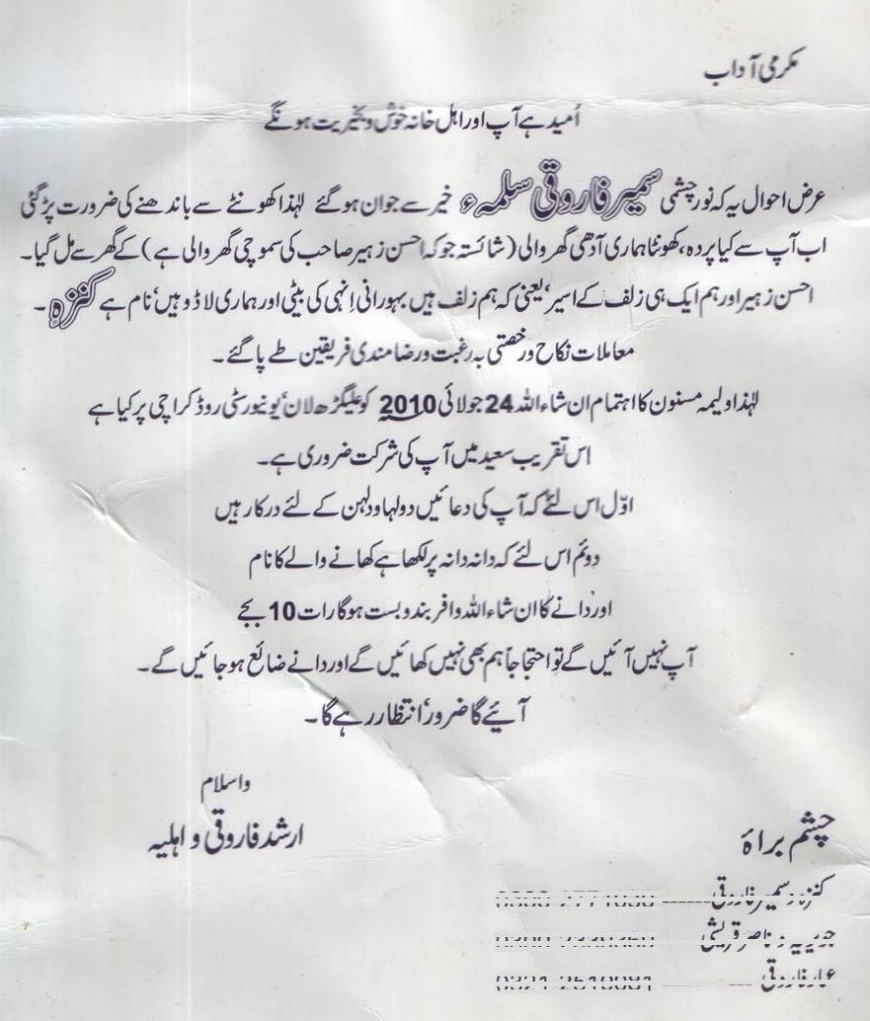 مکرمی آداب
اُمید ہے آپ اور اہل خانہ خوش و بخیریت ہونگے
عرض احوال یہ کہ نور چشمی سمیر فاروقی سلمہء خیر سے جوان ہو گئے لہٰذا کھونٹے سے باندھنے کی ضرورت پڑ گئی
اب آپ سے کیا پردہ، کھونٹا ہماری آدھی گھر والی (شائستہ جو کہ احسن زہیر صاحب کی سموچی گھر والی ہے) کے گھر سے مل گیا۔
احسن زہیر اور ہم ایک ہی زلف کے اسیر، یعنی کہ ہم زلف ہیں بہورانی اِنہی کی بیٹی اور ہماری لاڈو ہیں، نام ہے کنزہ۔
معاملات نکاح و رخصتی بہ رغبت و رضا مندی فریقین طے پا گئے۔
لہٰذا ولیمہ مسنون کا اہتمام ان شاء اللہ 24 جولائی 2010 کو علیگڑھ لان، یونیورسٹی روڈ کراچی پر کیا ہے
اس تقریب سعید میں آپ کی شرکت ضروری ہے۔
اوّل اس لئے کہ آپ کی دعائیں دولہا و دلہن کے لئے درکار ہیں
دوئم اس لئے کہ دانہ دانہ پر لکھا ہے کھانے والے کا نام
اور دانے کا ان شاء اللہ وافر بندوبست ہوگا رات 10 بجے
آپ نہیں آئیں گے تو احتجاجاً ہم بھی نہیں کھائیں گے اور دانے ضائع ہو جائیں گے۔
آیئے گا ضرور، انتظار رہے گا۔
واسلام
ارشد فاروقی و اہلیہ
چشم براہ
کنزہ و سمیر فاروقی
جویریہ و ناصر قریشی
فاروقی